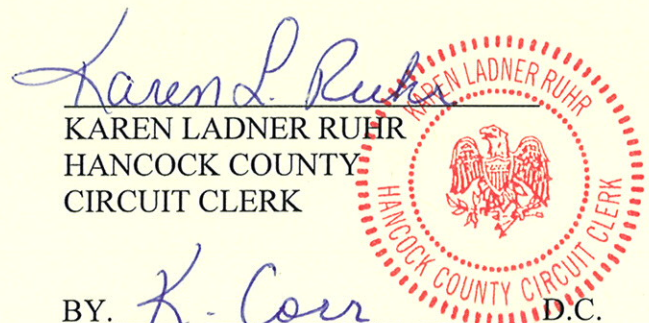 Karen L. Ruhr
KAREN LADNER RUHR
HANCOCK COUNTY
CIRCUIT CLERK
KAREN LADNER RUHR
HANCOCK COUNTY CIRCUIT CLERK
BY. K. Corr D.C.